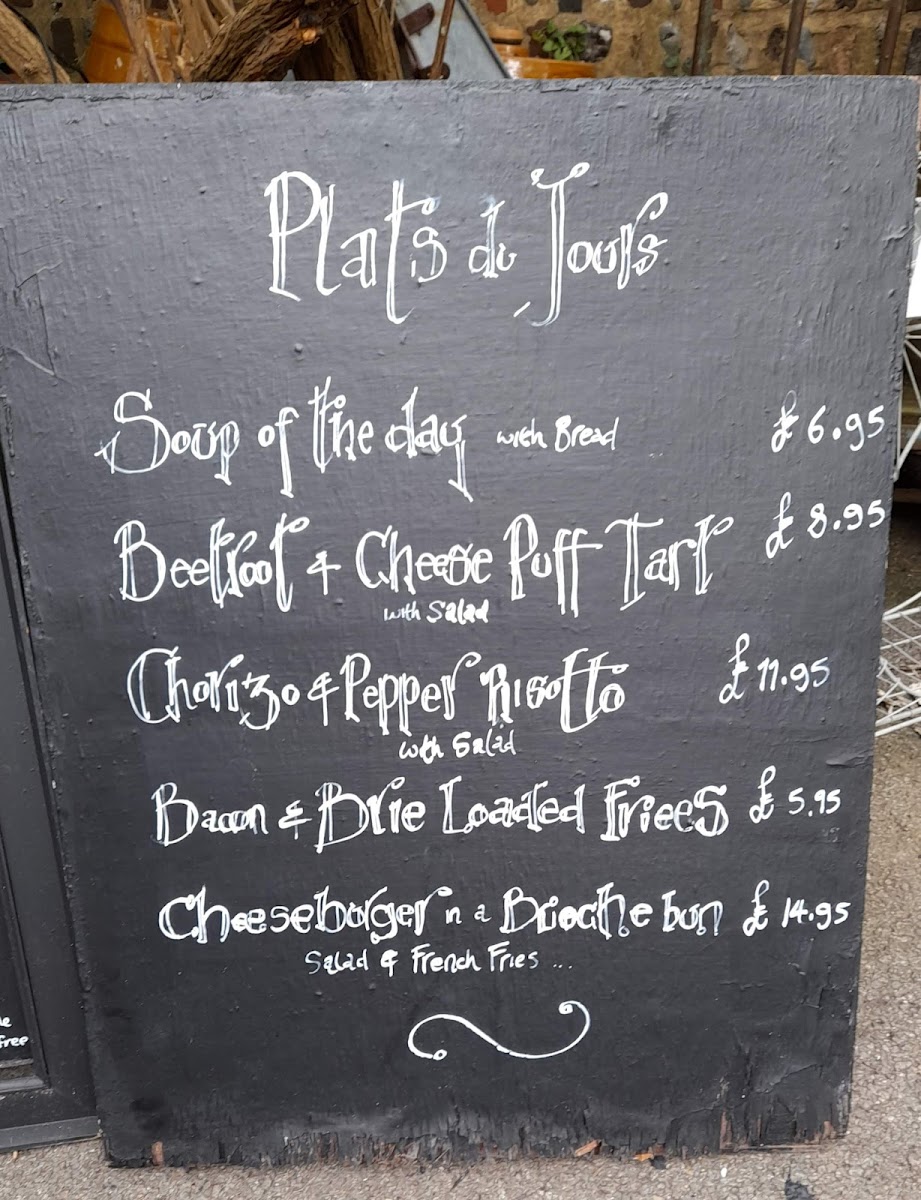 Plats du Jours
Soup of the day with Bread £6.95
Beetroot & Cheese Puff Tart £8.95
with Salad
Chorizo & Pepper Risotto £11.95
with Salad
Bacon & Brie Loaded Friees £5.95
Cheeseburger in a Brioche bun £14.95
Salad & French Fries ...
free